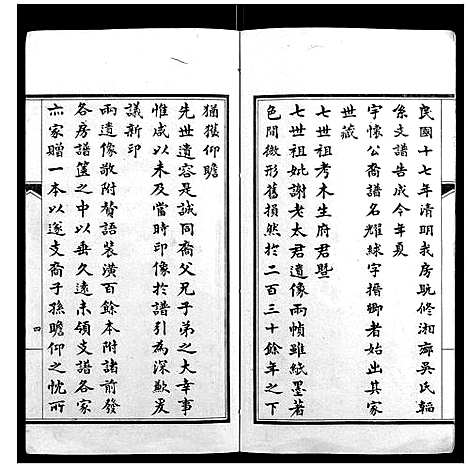 民國十七年清明我房既修湘鄉吳氏韜
糸支譜告成今年夏
宇懷公裔譜名耀球字搢卿者始出其家
世藏
七世祖考木生府君暨
七世祖妣謝老太君遺像兩幀雖紙墨著
色間微形舊損然於二百三十餘年之下
猶獲仰瞻
先世遺容是誠同裔父兄子弟之大幸事
惟咸以未及當時印像於譜引為深歉爰
議新印
兩遺像敬附贊語裝潢百餘本附諸前發
各房譜篋之中以垂久遠未領支譜各家
亦家贈一本以遂支裔子孫瞻仰之忱所
四